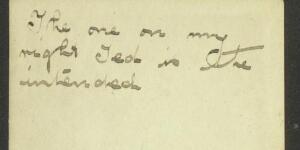 The one on my
right Ted is the
intended